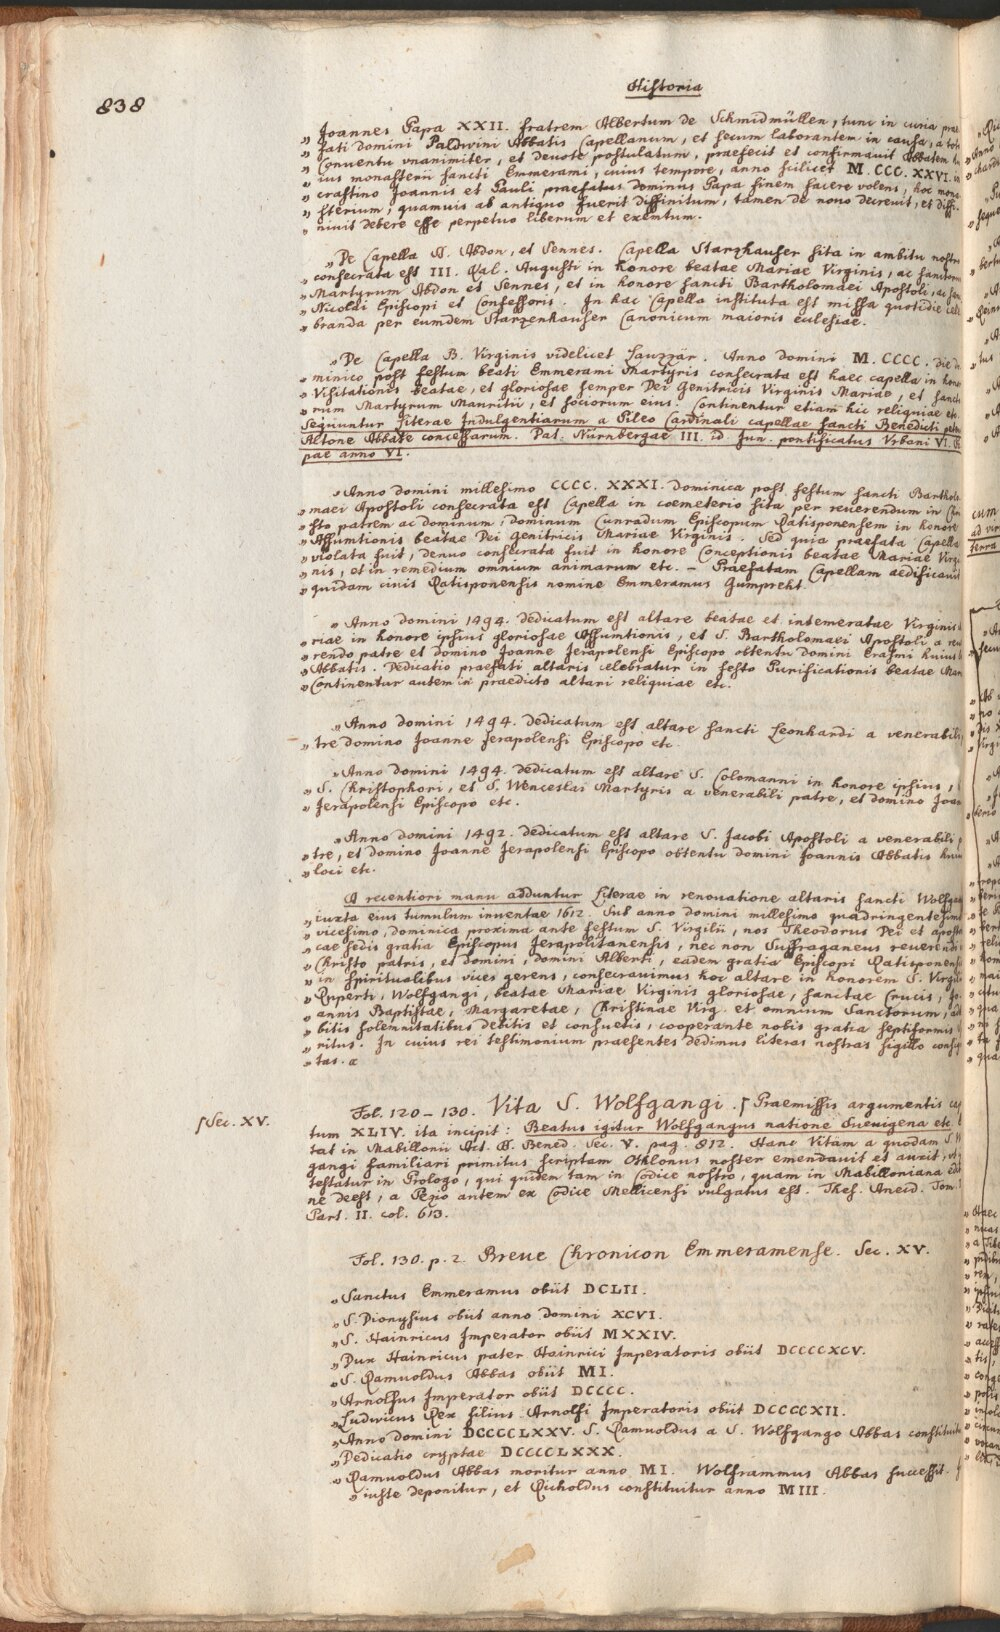 838
Historia
„ Joannes Papa XXII. fratrem Albertum de Schmidmüllen, tunc in curia prae
„ fati domini Paldwini Abbatis Capellanum, et secum laborantem in causa, a toto
„ Conventu vnanimiter, et deuote postulatum, praefecit et confirmauit Abbatem hu
„ ius monasterii sancti Emmerami, cuius tempore, anno scilicet M. CCC. XXVI. in
„ crastino Joannis et Pauli praefatus dominus Papa finem facere volens, hoc mona
„ sterium, quamuis ab antiquo fuerit diffinitum, tamen de nouo decreuit, et diffi-
„ niuit debere esse perpetuo liberum et exemtum.
„ De Capella SS. Abdon, et Sennes. Capella Starzhauser sita in ambitu nostro
„ consecrata est III. Kal. Augusti in honore beatae Mariae Virginis, ac sanctorum
„ Martyrum Abdon et Sennes, et in honore sancti Bartholomaei Apostoli, ac san
„ Nicolai Episcopi et Confessoris. In hac Capella instituta est missa quotidie cele
„ branda per eumdem Starzenhauser Canonicum maioris ecclesiae.
„ De Capella B. Virginis videlicet Lauzzär. Anno domini M. CCCC. die do
„ minico post festum beati Emmerami Martyris consecrata est haec capella in hono
„ Visitationis beatae, et gloriosae semper Dei Genitricis Virginis Mariae, et sancto
„ rum Martyrum Mauritii, et sociorum eius. Continentur etiam hic reliquiae etc.
Sequuntur Literae Indulgentiarum a Pileo Cardinali capellae sancti Benedicti peten
Altone Abbate concessarum. Dat. Nürnbergae III. id. Jun. pontificatus Vrbani VI. Pa
pae anno VI.
„ Anno domini millesimo CCCC. XXXI. dominica post festum sancti Bartholo
„ maei Apostoli consecrata est Capella in coemeterio sita per reuerendum in Chri
„ sto patrem ac dominum, dominum Cunradum Episcopum Ratisponensem in honore
„ Assumtionis beatae Dei Genitricis Mariae Virginis. Sed quia praefata Capella
„ violata fuit, denuo consecrata fuit in honore Conceptionis beatae Mariae Virgi
„ nis, et in remedium omnium animarum etc. – Praefatam Capellam aedificauit
„ quidam ciuis Ratisponensis nomine Emmeramus Gumprekt.
„ Anno domini 1494. dedicatum est altare beatae et intemeratae Virginis
„ riae in honore ipsius gloriosae Assumtionis, et S. Bartholomaei Apostoli a reue
„ rendo patre et domino Joanne Jerapolensi Episcopo obtentu domini Erasmi huius
„ Abbatis. Dedicatio praefati altaris celebratur in festo Purificationis beatae Mar
„ Continentur autem in praedicto altari reliquiae etc.
„ Anno domini 1494. dedicatum est altare sancti Leonhardi a venerabili
„ tre domino Joanne Jerapolensi Episcopo etc.
„ Anno domini 1494. dedicatum est altare S. Colomanni in honore ipsius,
„ S. Christophori, et S. Wenceslai Martyris a venerabili patre, et domino Joan
„ Jerapolensi Episcopo etc.
„ Anno domini 1492. dedicatum est altare S. Jacobi Apostoli a venerabili p
„ tre, et domino Joanne Jerapolensi Episcopo obtentu domini Joannis Abbatis huius
„ loci etc.
A recentiori manu adduntur Literae in renouatione altaris sancti Wolfgan
„ iuxta eius tumulum inuentae 1612. Sub anno domini millesimo quadringentesimo
„ vicesimo, dominica proxima ante festum S. Virgilii, nos Theodorus Dei et aposto
„ cae sedis gratia Episcopus Jerapolitanensis, nec non Suffraganeus reuerendi
„ Christo patris, et domini, domini Alberti, eadem gratia Episcopi Ratisponensis
„ in spiritualibus vices gerens, consecrauimus hoc altare in honorem S. Virgilii
„ Rvperti, Wolfgangi, beatae Mariae Virginis gloriosae, sanctae Crucis, Jo
„ annis Baptistae, Margaretae, Christinae Virg. et omnium Sanctorum, ad
„ bitis solennitatibus debitis et consuetis, cooperante nobis gratia septiformis
„ ritus. In cuius rei testimonium praesentes dedimus literas nostras sigillo consig
„ tas. a
ſ Sec. XV.
Fol. 120 – 130. Vita S. Wolfgangi. ſ Praemissis argumentis cap
tum XLIV. ita incipit: Beatus igitur Wolfgangus natione Sueuigena etc.
tat in Mabillonii Act. SS. Bened. Sec. V. pag. 812. Hanc Vitam a quodam S. W
gangi familiari primitus scriptam Othlonus noster emendauit et auxit, vt
testatur in Prologo, qui quidem tam in Codice nostro, quam in Mabilloniana edi
ne deest, a Pezio autem ex Codice Mellicensi vulgatus est. Thes. Anecd. Tom.
Part. II. col. 613.
Fol. 130. p. 2. Breue Chronicon Emmeramense. Sec. XV.
„ Sanctus Emmeramus obiit DCLII.
„ S. Dionysius obiit anno domini XCVI.
„ S. Hainricus Imperator obiit MXXIV.
„ Dux Hainricus pater Hainrici Imperatoris obiit DCCCCXCV.
„ S. Ramuoldus Abbas obiit MI.
„ Arnolfus Imperator obiit DCCCC.
„ Ludwicus Rex filius Arnolfi Imperatoris obiit DCCCCXII.
„ Anno domini DCCCCLXXV. S. Ramuoldus a S. Wolfgango Abbas constituitu
„ Dedicatio cryptae DCCCCLXXX.
„ Ramuoldus Abbas moritur anno MI. Wolframmus Abbas successit.
„ iuste deponitur, et Richoldus constituitur anno MIII.